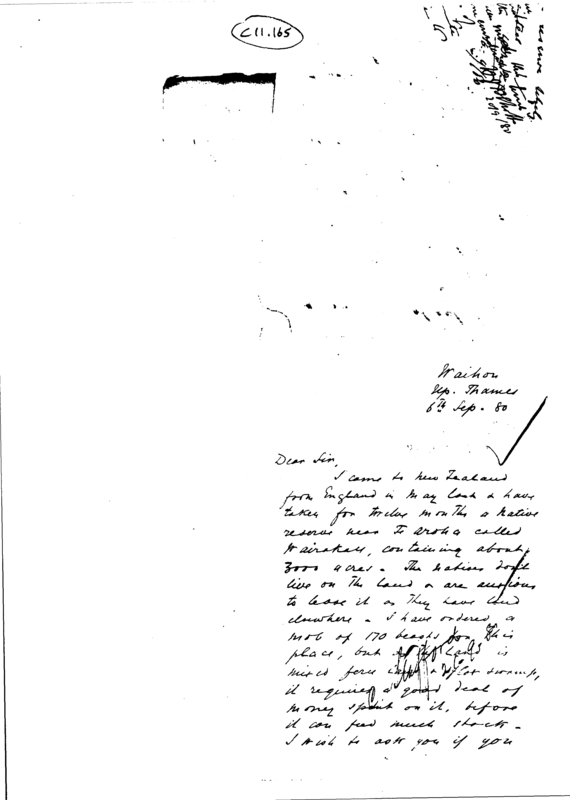 C11.165
Waihou
Up. Thames
6th Sep. 80
Dear Sir,
I came to new Zealand
from England in May last & have
taken for twelve months a Native
reserve near Te Aroha called
Wairakau, containing about
3000 acres - The natives don't
live on the land & are anxious
to lease it as they have land
elsewhere - I have ordered a
mob of 170 beasts for this
place, but as the land is
mixed fern & flat swamp,
it requires a good deal of
money spent on it, before
it can feed much stock -
I wish to ask you if you